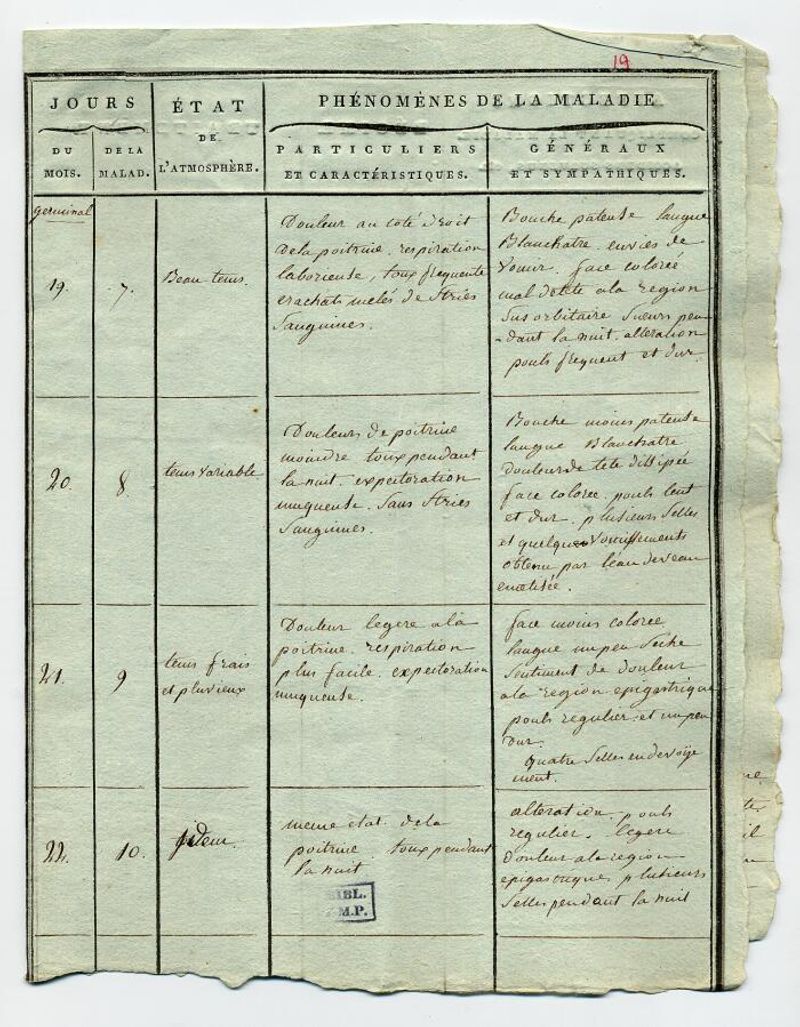 19
JOURS
ÉTAT
DE
L'ATMOSPHÈRE.
PHÉNOMÈNES DE LA MALADIE
DU
MOIS.
DE LA
MALAD.
PARTICULIERS
ET CARACTÉRISTIQUES.
GÉNÉRAUX
ET SYMPATHIQUES.
germinal
19.
7.
Beau tems.
Douleur au coté droit
de la poitrine. respiration
laborieuse, toux frequente
crachats melés de Stries
Sanguines.
Bouche pateuse langue
Blanchatre. envies de
vomir. face colorée
mal de tete a la region
Susorbitaire Sueurs pen
-dant la nuit. alteration
pouls frequent et dur.
20.
8.
tems variable
Douleurs de poitrine
moindre toux pendant
la nuit. expectoration
muqueuse. Sans Stries
Sanguines.
Bouche moins pateuse
langue Blanchatre
douleur de tete dissipée
face colorée. pouls lent
et dur. plusieurs Selles
et quelques vomissements
obtenu par l'eau de veau
emetisée.
21.
9
tems frais
et pluvieux
Douleur legere a la
poitrine. respiration
plus facile. expectoration
muqueuse.
face moins colorée
langue un peu Seche
Sentiment de douleur
a la region epigastrique
pouls regulier. et un peu
dur.
quatre Selles en devoye
ment.
22.
10.
idem.
meme etat de la
poitrine. toux pendant
la nuit
alteration. pouls
regulier. legere
douleur a la region
epigastrique, plusieurs
Selles pendant la nuit
BIBL.
M.P.